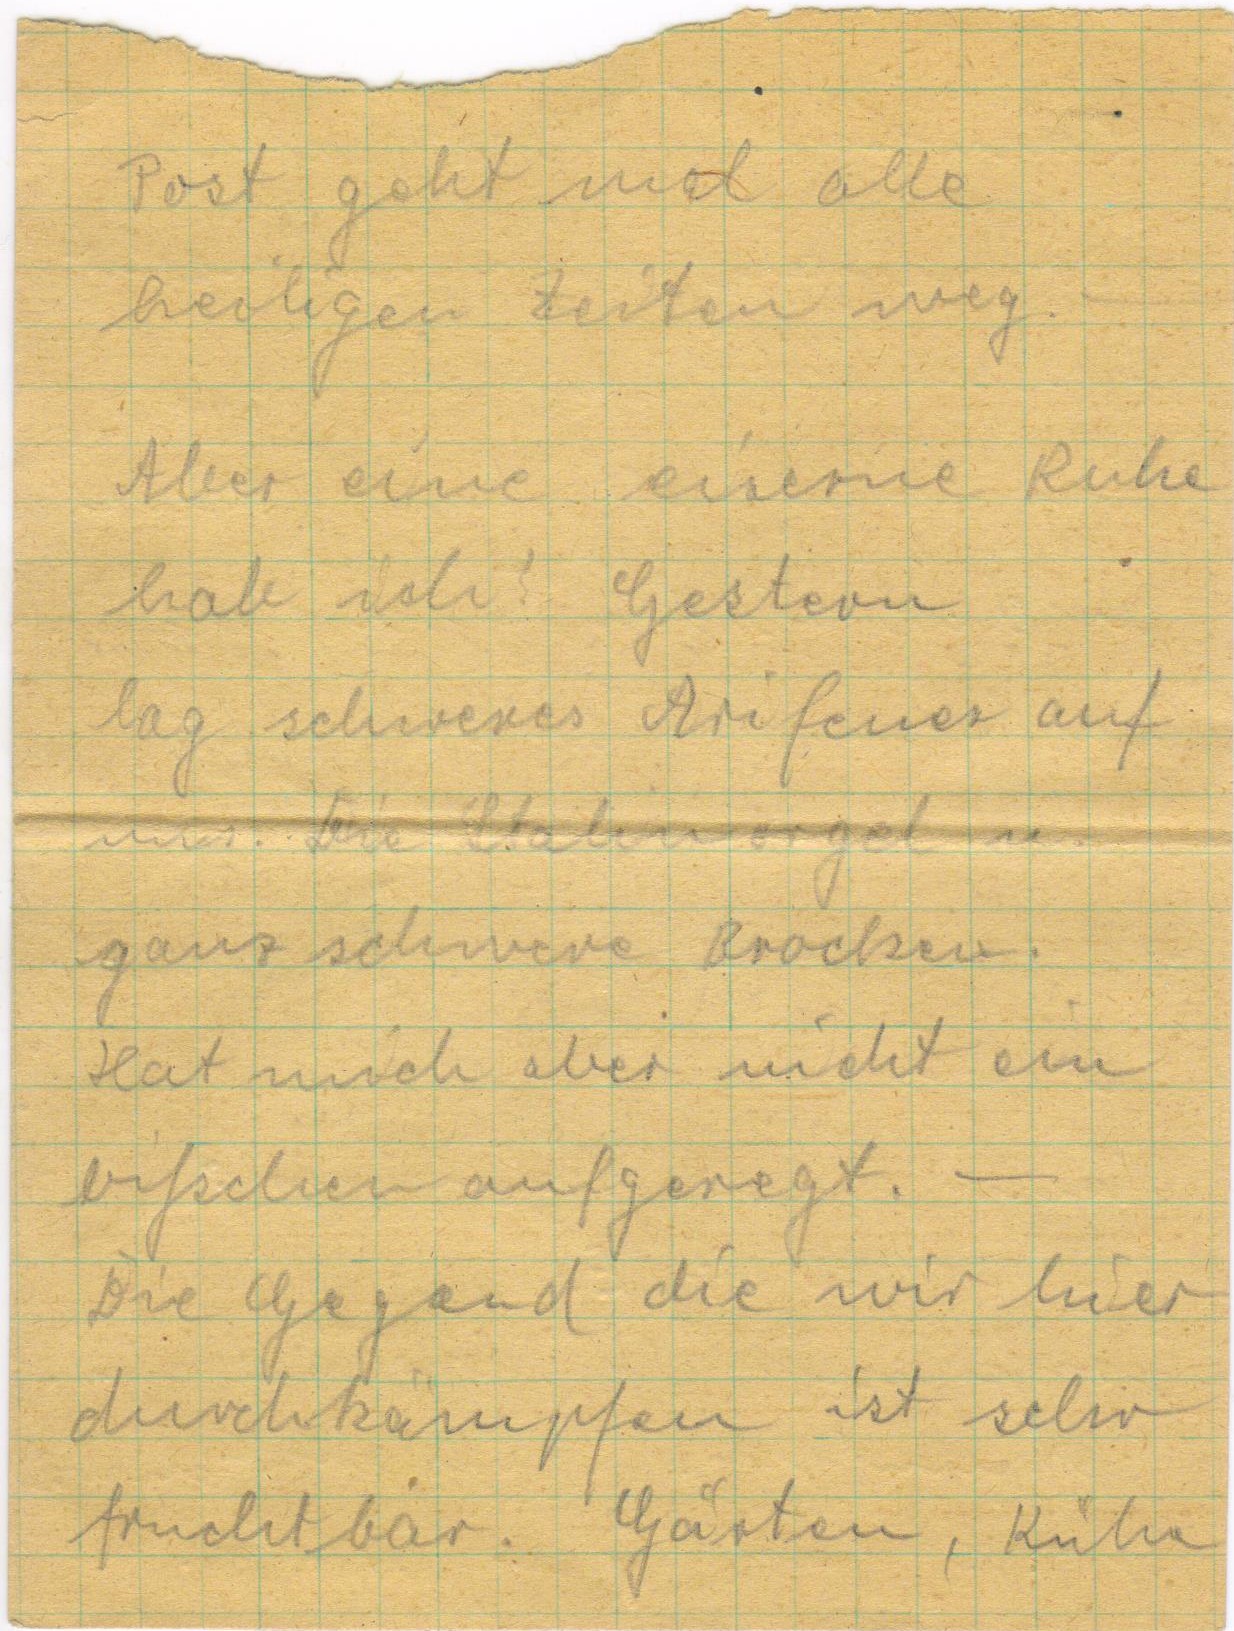 Post geht mal alle
heiligen Zeiten weg. —
Aber eine eiserne Ruhe
hab ich! Gestern
lag schweres Arifeuer auf
mir. Die Stalinorgel u.
ganz schwere Brocken.
Hat mich aber nicht ein
bißchen aufgeregt. —
Die Gegend die wir hier
durchkämpfen ist sehr
fruchtbar. Gärten, Kühe